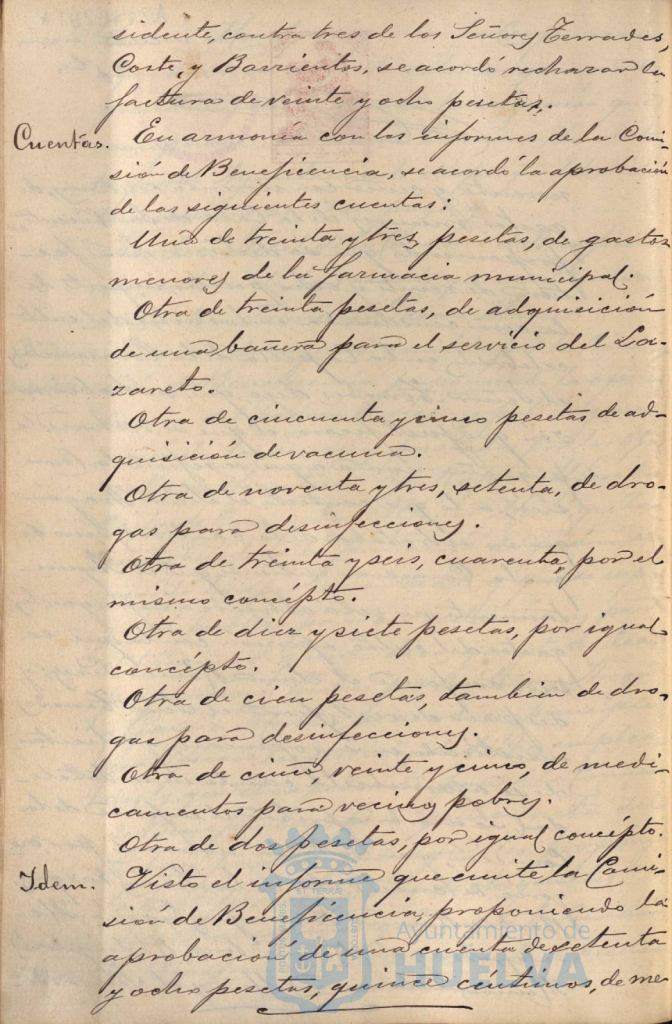 sidente, contra tres de los Señores Terrades,
Coste, y Barrientos, se acordó rechazar la
factura de veinte y ocho pesetas.
Cuentas. En armonía con los informes de la Comi-
sión de Beneficencia, se acordó la aprobación
de las siguientes cuentas:
Una de treinta y tres, pesetas, de gastos
menores de la farmacia municipal.
Otra de treinta pesetas, de adquisición
de una bañera para el servicio del La-
zareto.
Otra de cincuenta y cinco pesetas de ad-
quisición de vacuna.
Otra de noventa y tres, setenta, de dro-
gas para desinfecciones.
Otra de treinta y seis, cuarenta, por el
mismo concépto.
Otra de diez y siete pesetas, por igual
concépto.
Otra de cien pesetas, tambien de dro-
gas para desinfecciones.
Otra de cinco, veinte y cinco, de medi-
camentos para vecinos pobres.
Otra de dos pesetas, por igual concépto.
Idem. Visto el informe que emite la Comi-
sión de Beneficencia, proponiendo la
aprobación de una cuenta de setenta
y ocho pesetas, quince céntimos, de me
Ayuntamiento de
HUELVA